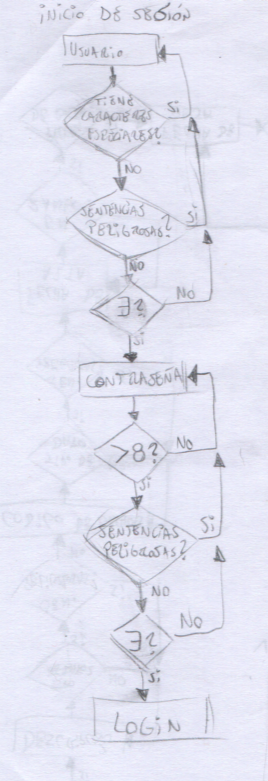 INICIO DE SESIÓN
USUARIO
TIENE
CARACTERES
ESPECIALES?
SI
NO
SENTENCIAS
PELIGROSAS?
SI
NO
∃?
NO
Si
CONTRASEÑA
>8?
NO
Si
SENTENCIAS
PELIGROSAS?
Si
NO
∃?
NO
Si
LOGIN